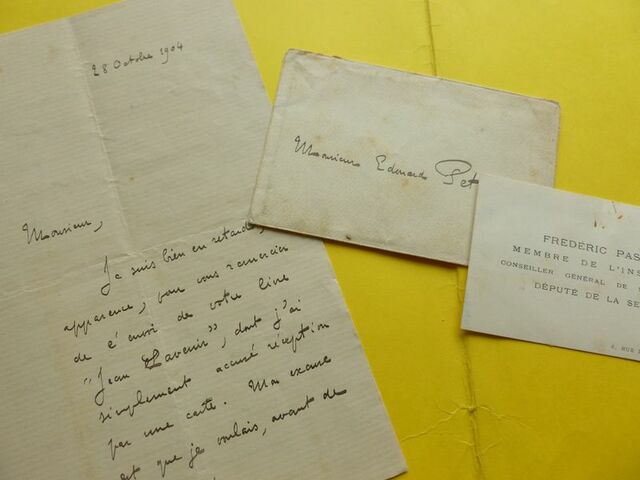 28 Octobre 1904
Monsieur,
Je suis bien en retard,
apparence, pour vous remercier
de l'envoi de votre livre
"Jean Lavenir", dont j'ai
simplement accusé réception
par une carte. Mon excuse
est que je voulais, avant de
Monsieur Edouard Pet
FREDERIC PAS
MEMBRE DE L'INS
CONSEILLER GÉNÉRAL DE
DÉPUTÉ DE LA SE